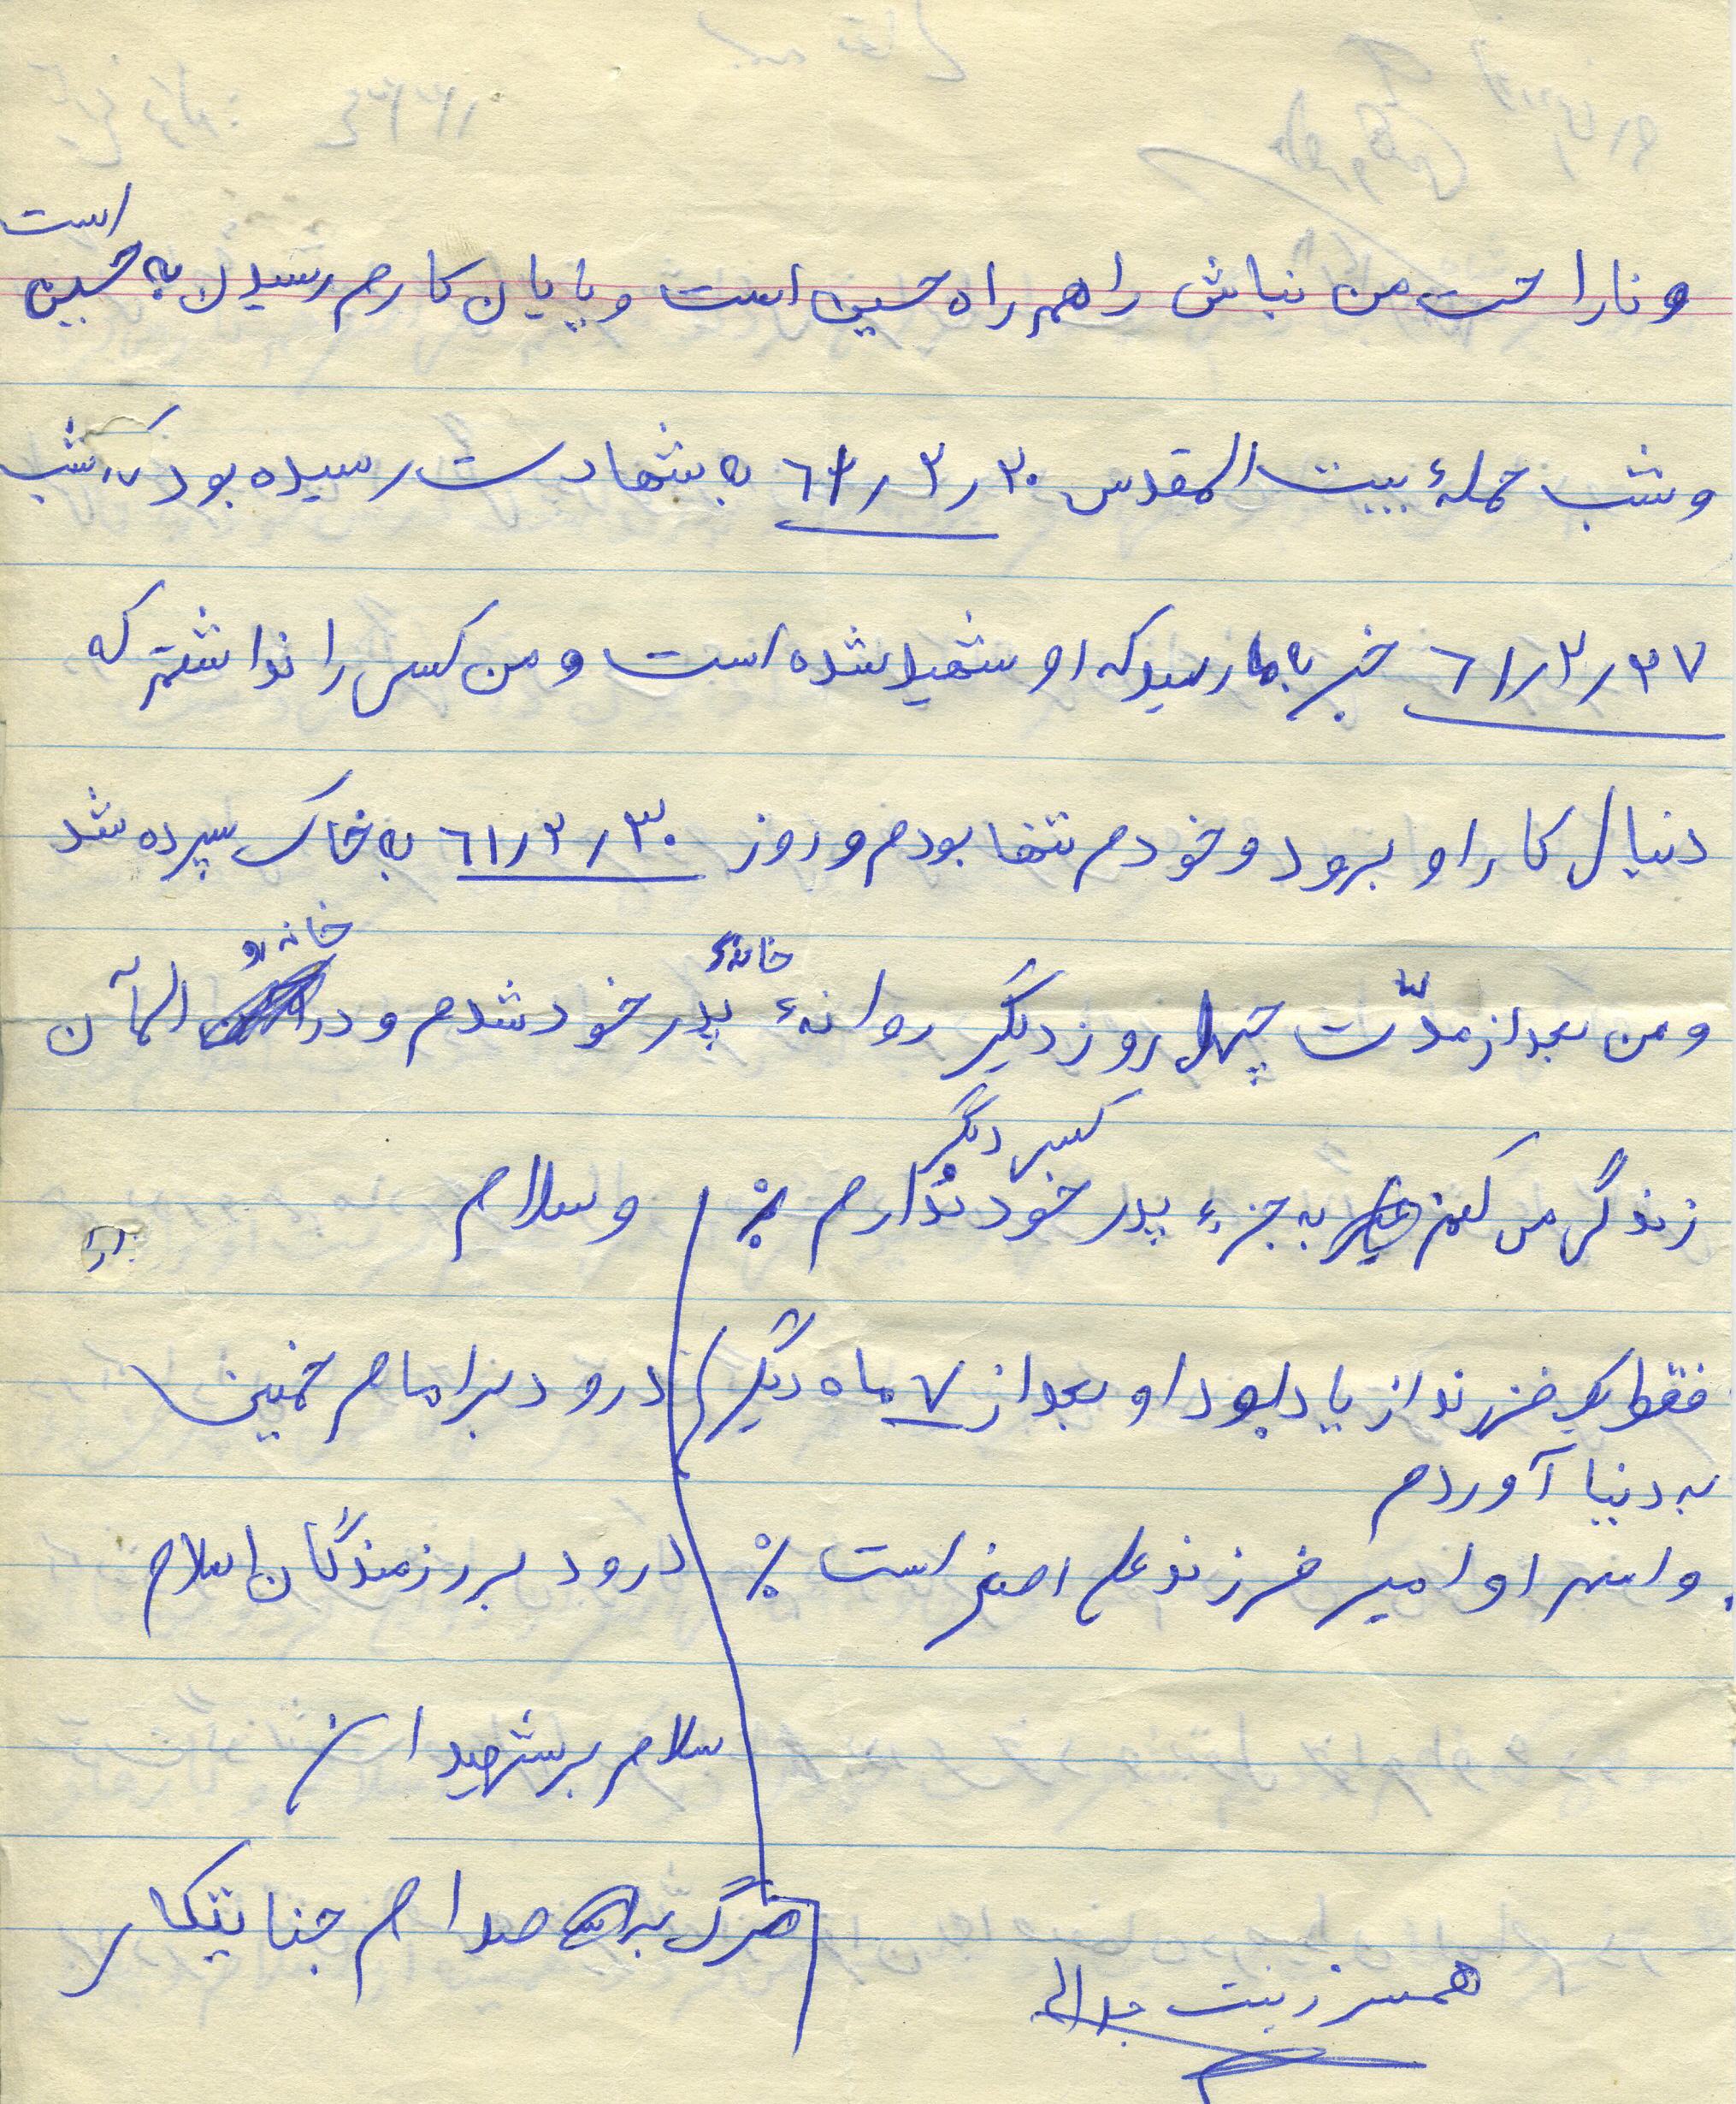 و ناراحت من نباش راهم راه حسین است و پایان کارم رسیدن به حسین است
و شب حملهٔ بیت المقدس ۶۱/۲/۲۰ به شهادت رسیده بود که شب
۶۱/۲/۲۷ خبر بما رسید که او شهید شده است و من کسی را نداشتم که
دنبال کار او برود و خودم تنها بودم و روز ۶۱/۲/۳۰ به خاک سپرده شد
و من بعد از مدّت چهل روز دیگر روانهٔ خانهٔ پدر خود شدم و در خانه او الآن
زندگی می کنم به جزء پدر خود کسی دیگر ندارم ٪
فقط یک فرزند از یاد بود او بعد از ۷ ماه دیگر
به دنیا آوردم
و اسم او امیر فرزند علی اصغر است ٪
همسر زینت
وسلام
درود بر امام خمینی
درود بر رزمندگان اسلام
سلام بر شهیدان
مرگ بر صدام جنایتکار